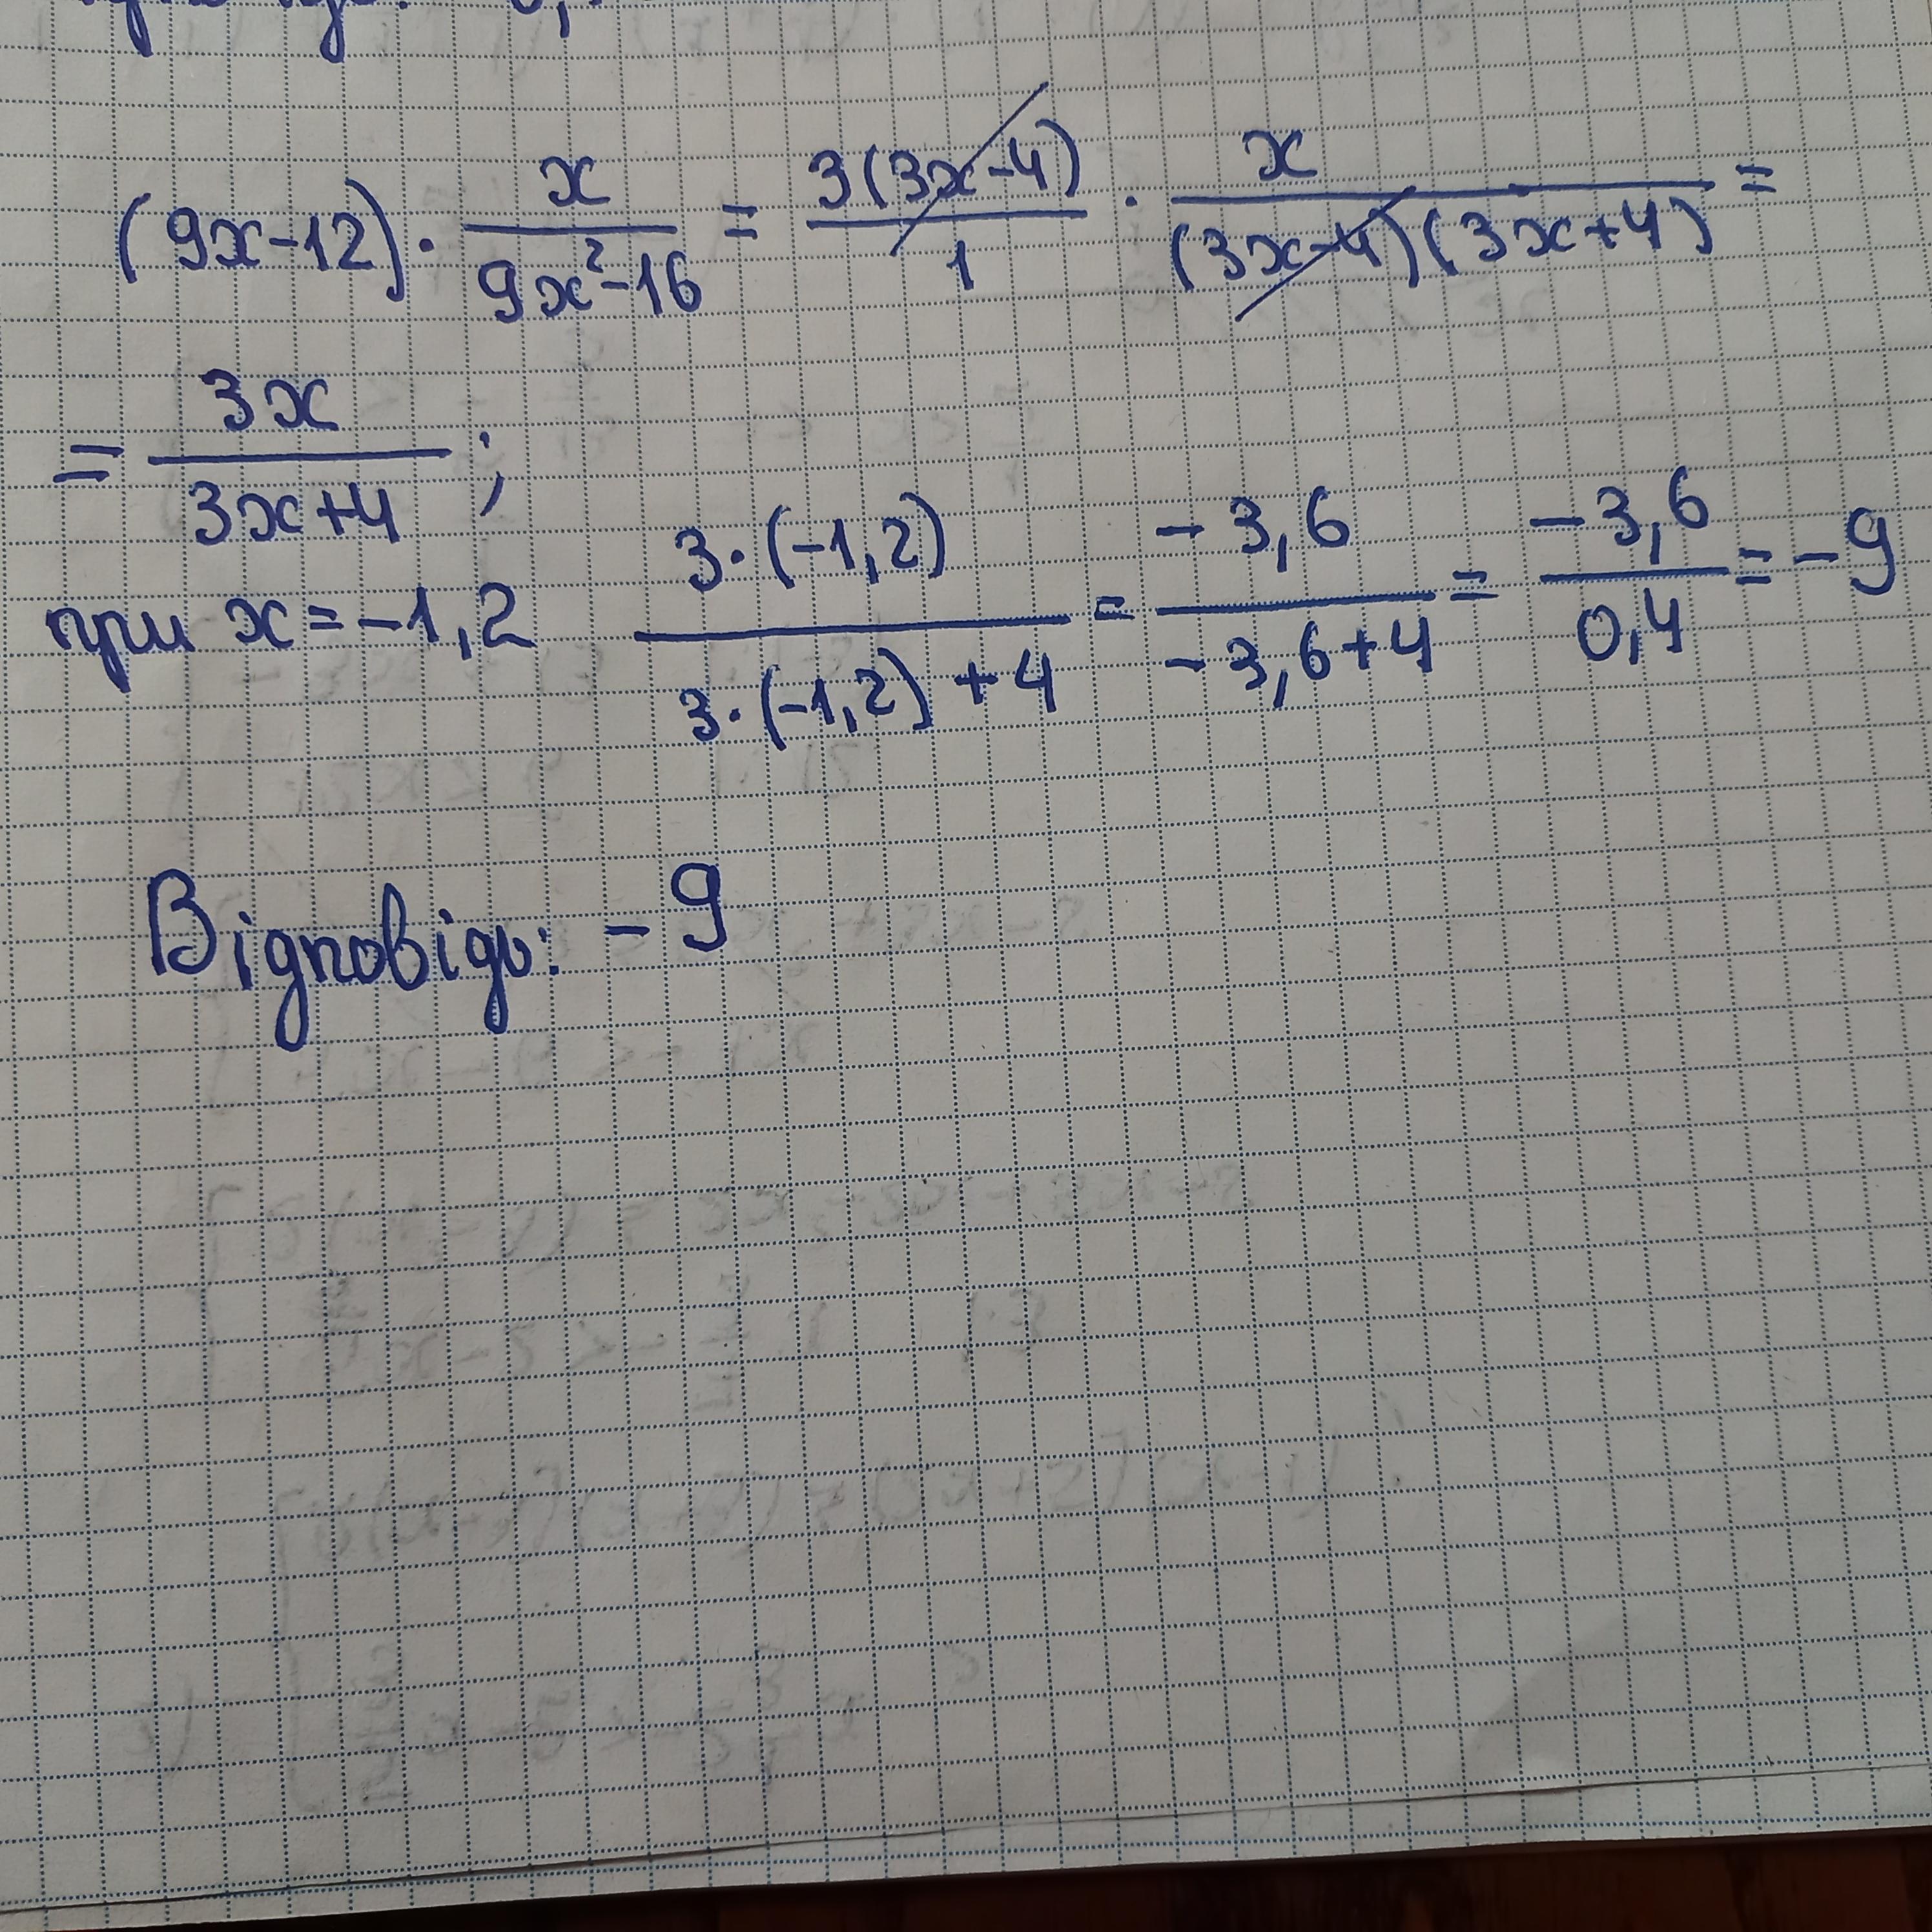 (9x-12) · x/(9x²-16) = 3(3x-4)/1 · x/((3x-4)(3x+4)) =
= 3x/(3x+4) ;
при x = -1,2   (3·(-1,2))/(3·(-1,2)+4) = (-3,6)/(-3,6+4) = (-3,6)/(0,4) = -9
Відповідь: -9